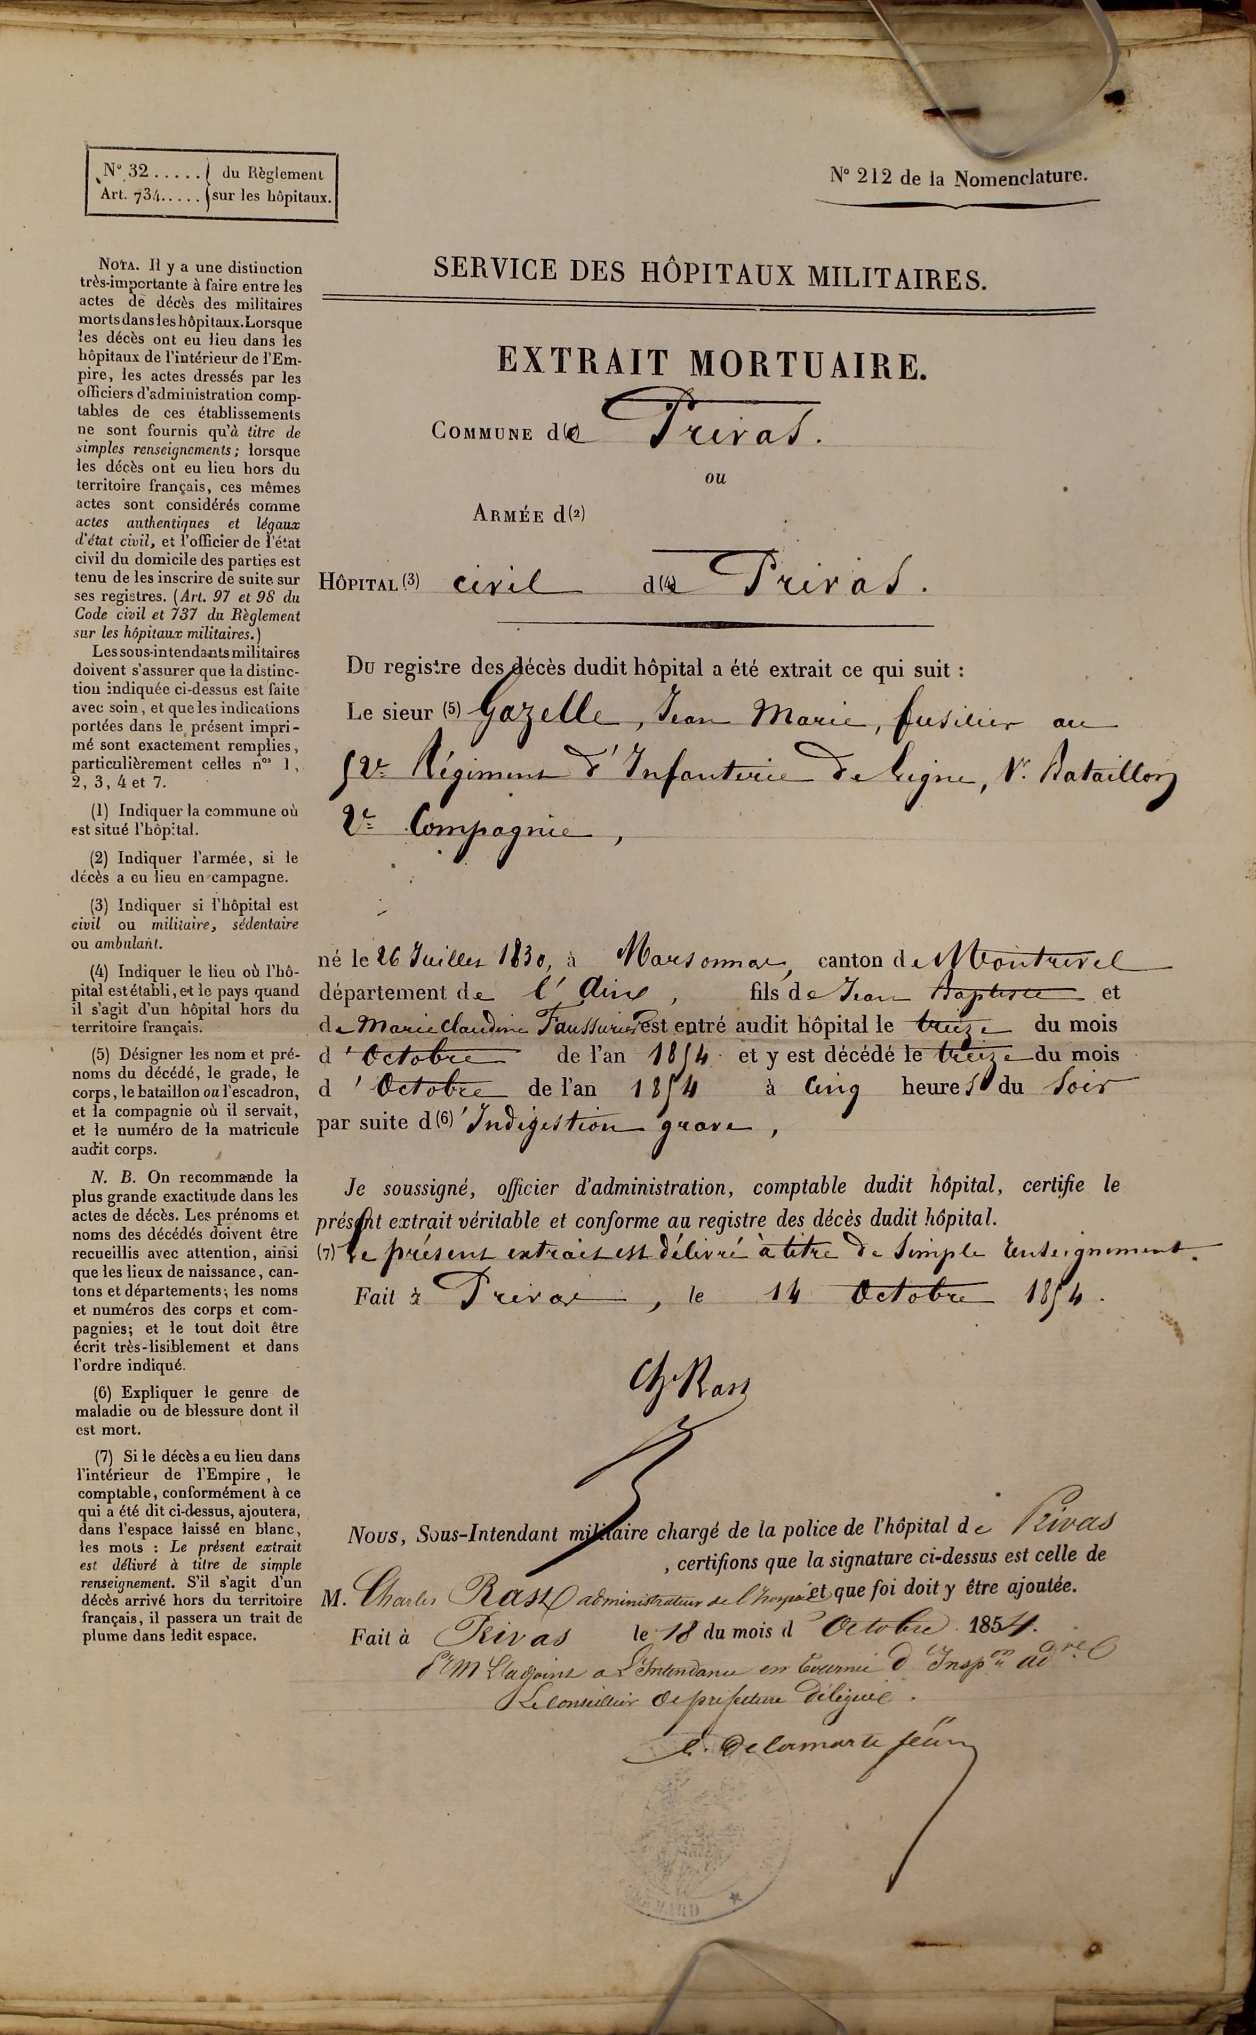 N° 32 ..... du Règlement
Art. 734..... sur les hôpitaux.
N° 212 de la Nomenclature.
SERVICE DES HÔPITAUX MILITAIRES.
EXTRAIT MORTUAIRE.
COMMUNE de Privas.
ou
ARMÉE d(2)
HÔPITAL (3) civil d(4)e Privas.
Du registre des décès dudit hôpital a été extrait ce qui suit :
Le sieur (5) Gazelle, Jean Marie, fusilier au
52e Régiment d'Infanterie de Ligne, Bataillon
2e Compagnie,
né le 26 Juillet 1830, à Marsonnas, canton de Montrevel
département de l'Ain, fils de Jean Baptiste et
de Marie Claudine est entré audit hôpital le treize du mois
d'Octobre de l'an 1854 et y est décédé le treize du mois
d'Octobre de l'an 1854 à Cinq heures du Soir
par suite d(6)'Indigestion grave,
Je soussigné, officier d'administration, comptable dudit hôpital, certifie le
présent extrait véritable et conforme au registre des décès dudit hôpital.
(7) Le présent extrait est délivré à titre de simple renseignement.
Fait à Privas, le 14 Octobre 1854.
Nous, Sous-Intendant militaire chargé de la police de l'hôpital de Privas
, certifions que la signature ci-dessus est celle de
M. Charles administrateur de l'hospice et que foi doit y être ajoutée.
Fait à Privas le 18 du mois d'Octobre 1854.
Pr M l'adjoint à l'Intendance en tournée d'Inspon adve
Le Conseiller de préfecture délégué.
NOTA. Il y a une distinction
très-importante à faire entre les
actes de décès des militaires
morts dans les hôpitaux. Lorsque
les décès ont eu lieu dans les
hôpitaux de l'intérieur de l'Em-
pire, les actes dressés par les
officiers d'administration comp-
tables de ces établissements
ne sont fournis qu'à titre de
simples renseignements ; lorsque
les décès ont eu lieu hors du
territoire français, ces mêmes
actes sont considérés comme
actes authentiques et légaux
d'état civil, et l'officier de l'état
civil du domicile des parties est
tenu de les inscrire de suite sur
ses registres. (Art. 97 et 98 du
Code civil et 737 du Règlement
sur les hôpitaux militaires.)
Les sous-intendants militaires
doivent s'assurer que la distinc-
tion indiquée ci-dessus est faite
avec soin, et que les indications
portées dans le présent impri-
mé sont exactement remplies,
particulièrement celles nos 1,
2, 3, 4 et 7.
(1) Indiquer la commune où
est situé l'hôpital.
(2) Indiquer l'armée, si le
décès a eu lieu en campagne.
(3) Indiquer si l'hôpital est
civil ou militaire, sédentaire
ou ambulant.
(4) Indiquer le lieu où l'hô-
pital est établi, et le pays quand
il s'agit d'un hôpital hors du
territoire français.
(5) Désigner les nom et pré-
noms du décédé, le grade, le
corps, le bataillon ou l'escadron,
et la compagnie où il servait,
et le numéro de la matricule
audit corps.
N. B. On recommande la
plus grande exactitude dans les
actes de décès. Les prénoms et
noms des décédés doivent être
recueillis avec attention, ainsi
que les lieux de naissance, can-
tons et départements ; les noms
et numéros des corps et com-
pagnies ; et le tout doit être
écrit très-lisiblement et dans
l'ordre indiqué.
(6) Expliquer le genre de
maladie ou de blessure dont il
est mort.
(7) Si le décès a eu lieu dans
l'intérieur de l'Empire, le
comptable, conformément à ce
qui a été dit ci-dessus, ajoutera,
dans l'espace laissé en blanc,
les mots : Le présent extrait
est délivré à titre de simple
renseignement. S'il s'agit d'un
décès arrivé hors du territoire
français, il passera un trait de
plume dans ledit espace.